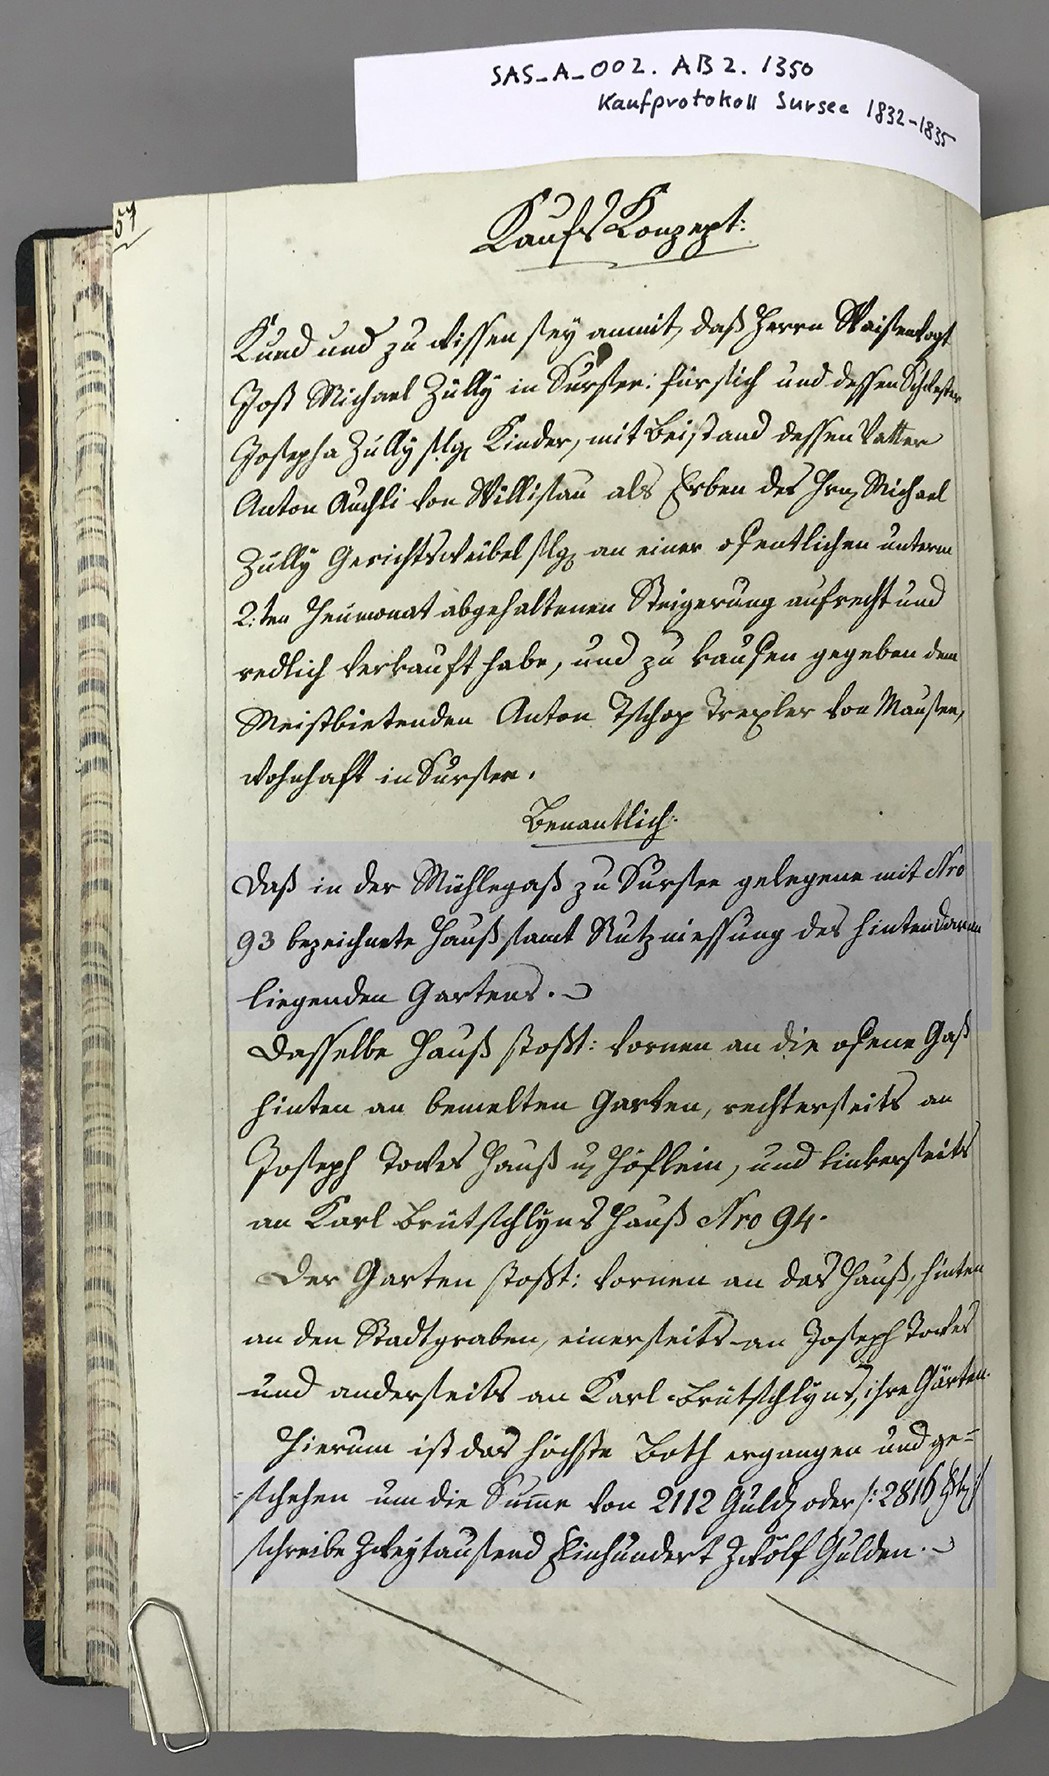 SAS_A_002. AB2. 1350
Kaufprotokoll Sursee 1832-1835
57
Kaufs Konzept:
Kund und zu wissen sey anmit, daß Herrn Waisenvogt
Jost Michael Zülly in Sursee: für sich und dessen Schwester
Josepha Zülly slg. Kinder, mit Beistand dessen Vatter
Anton Auchli von Willisau als Erben des Hrn. Michael
Zülly Gerichtsweibel slg. an einer ofentlichen unterm
2:ten Heumonat abgehaltenen Steigerung aufrecht und
redlich verkauft habe, und zu kaufen gegeben dem
Meistbietenden Anton Tschop Drexler von Mausee,
wohnhaft in Sursee.
Benantlich:
Daß in der Mühlegaß zu Sursee gelegene mit Nro
93 bezeichnete Hauß samt Nutzniessung des hinten daran
liegenden Gartens.
Dasselbe Hauß stoßt: vornen an die ofene Gaß
hinten an bemelten Garten, rechterseits an
Joseph Hauß u. Höflein, und linkerseits
an Karl Brütschlyns Hauß Nro 94.
Der Garten stoßt: vornen an das Hauß, hinten
an den Stadtgraben, einerseits an Joseph
und anderseits an Karl Brütschlyns, ihre Gärten.
Hierum ist das höchste Both ergangen und ge=
=schehen um die Summe von 2112 Guld. oder /: 2816 Frk. :/
schreibe Zweytausend Einhundert Zwölf Gulden.